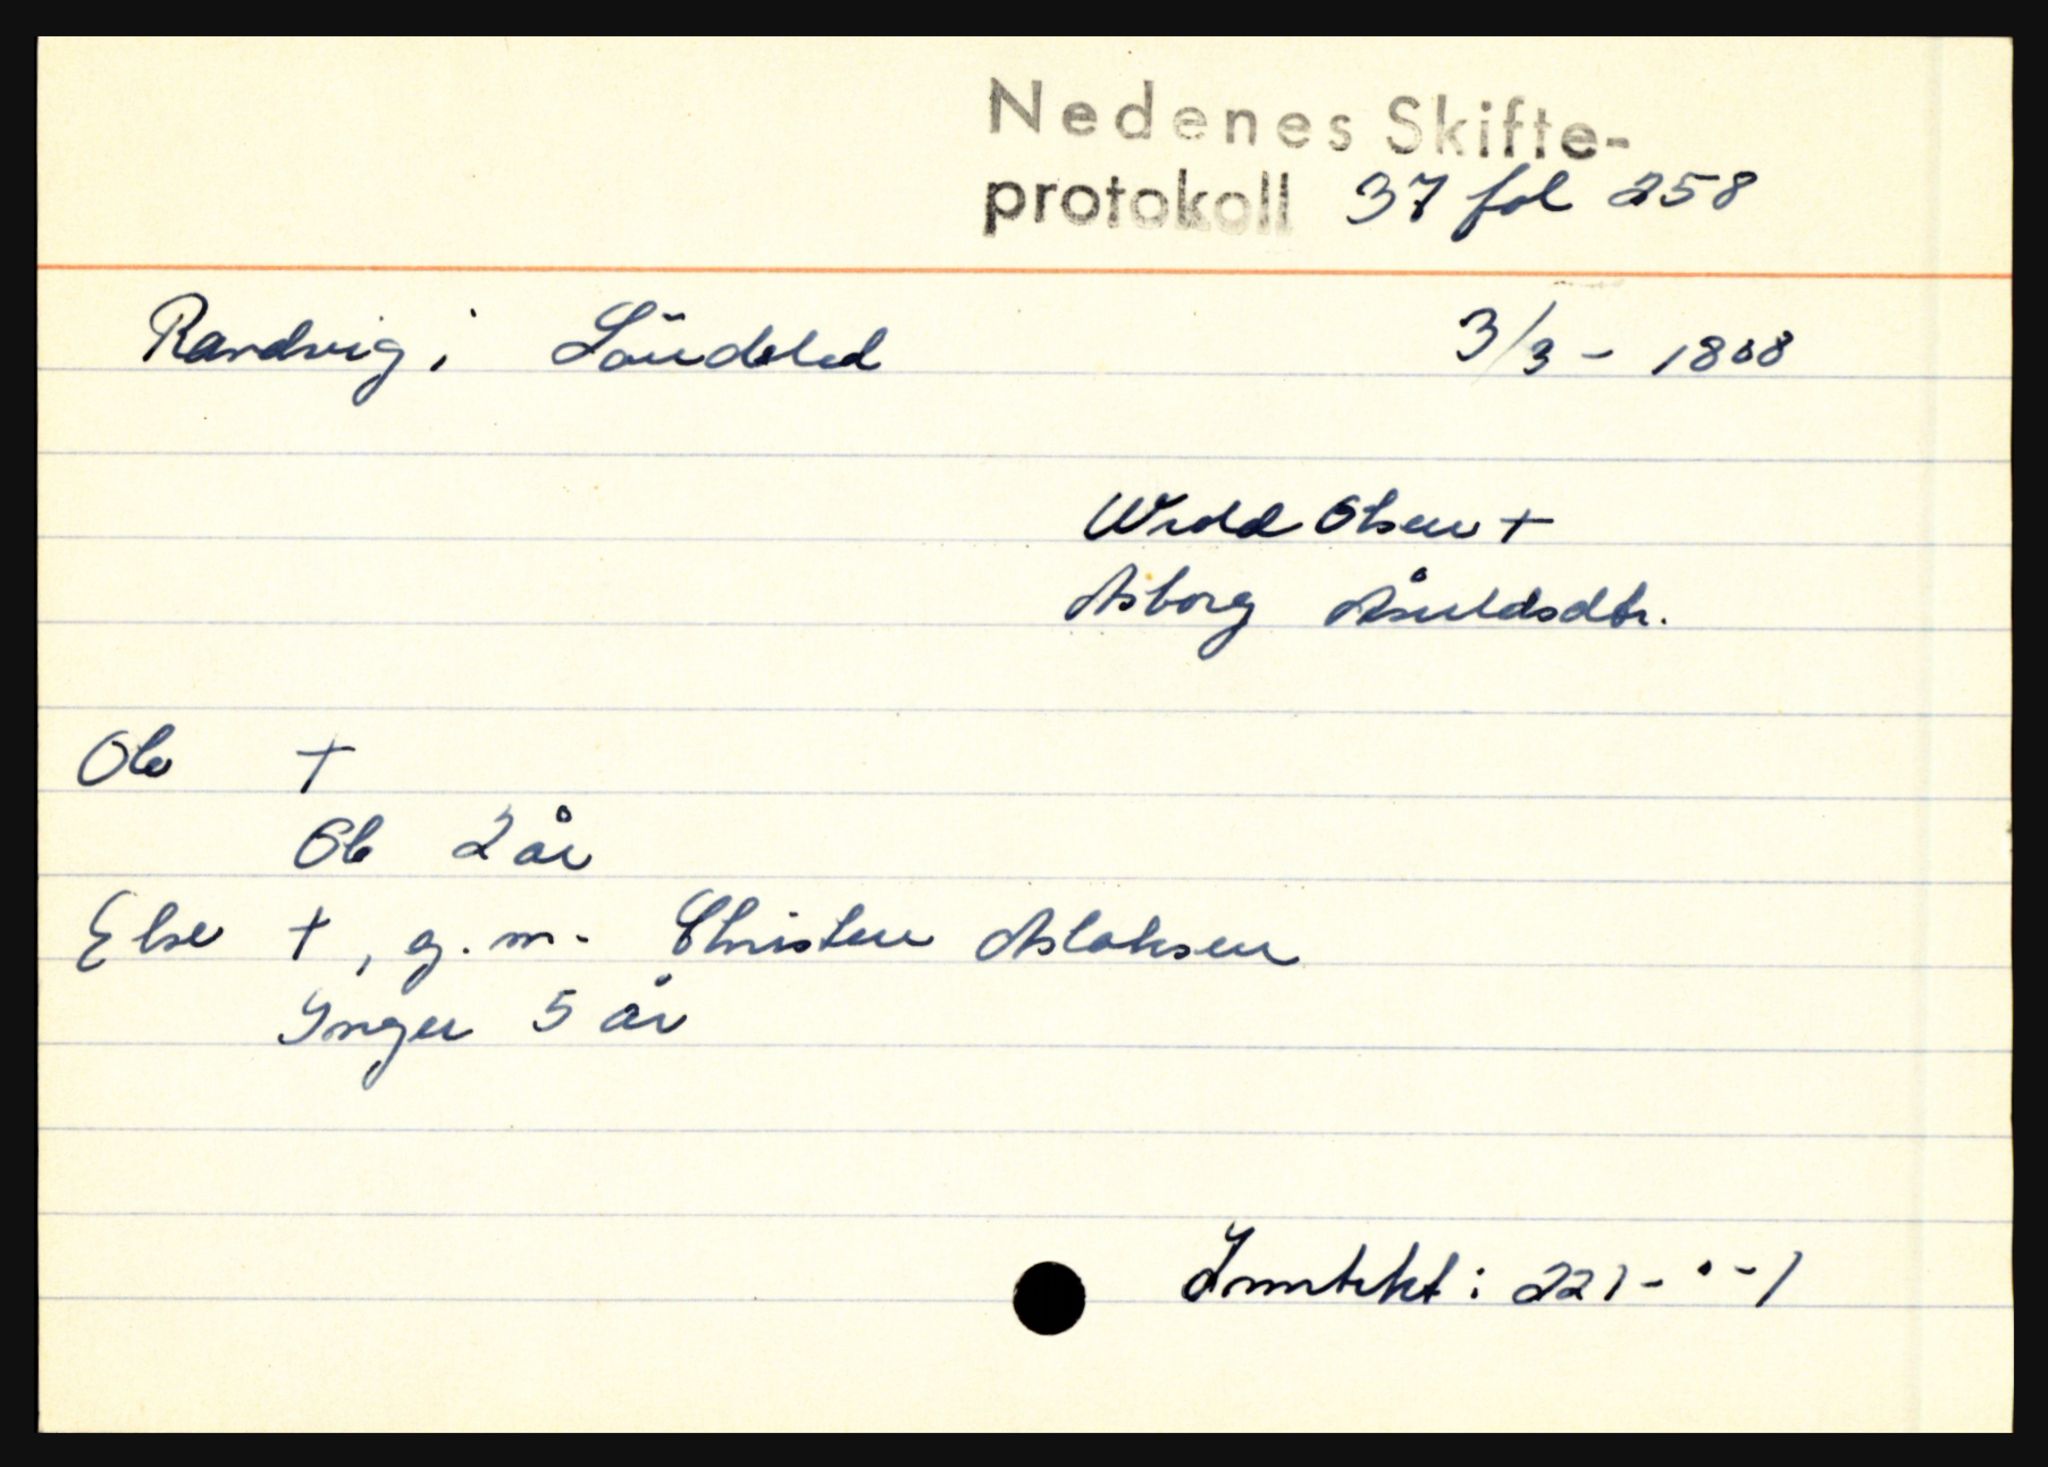 Nedenes Skifte-
protokoll 37 fol 258
Randvig i Söndeled 3/3 - 1808
Wrold Olsen +
Asborg Åsuldsdtr.
Ole +
Ole 2 år
Else +, g. m. Christen Aslaksen
Ynger 5 år
Inntekt: 221-"-1